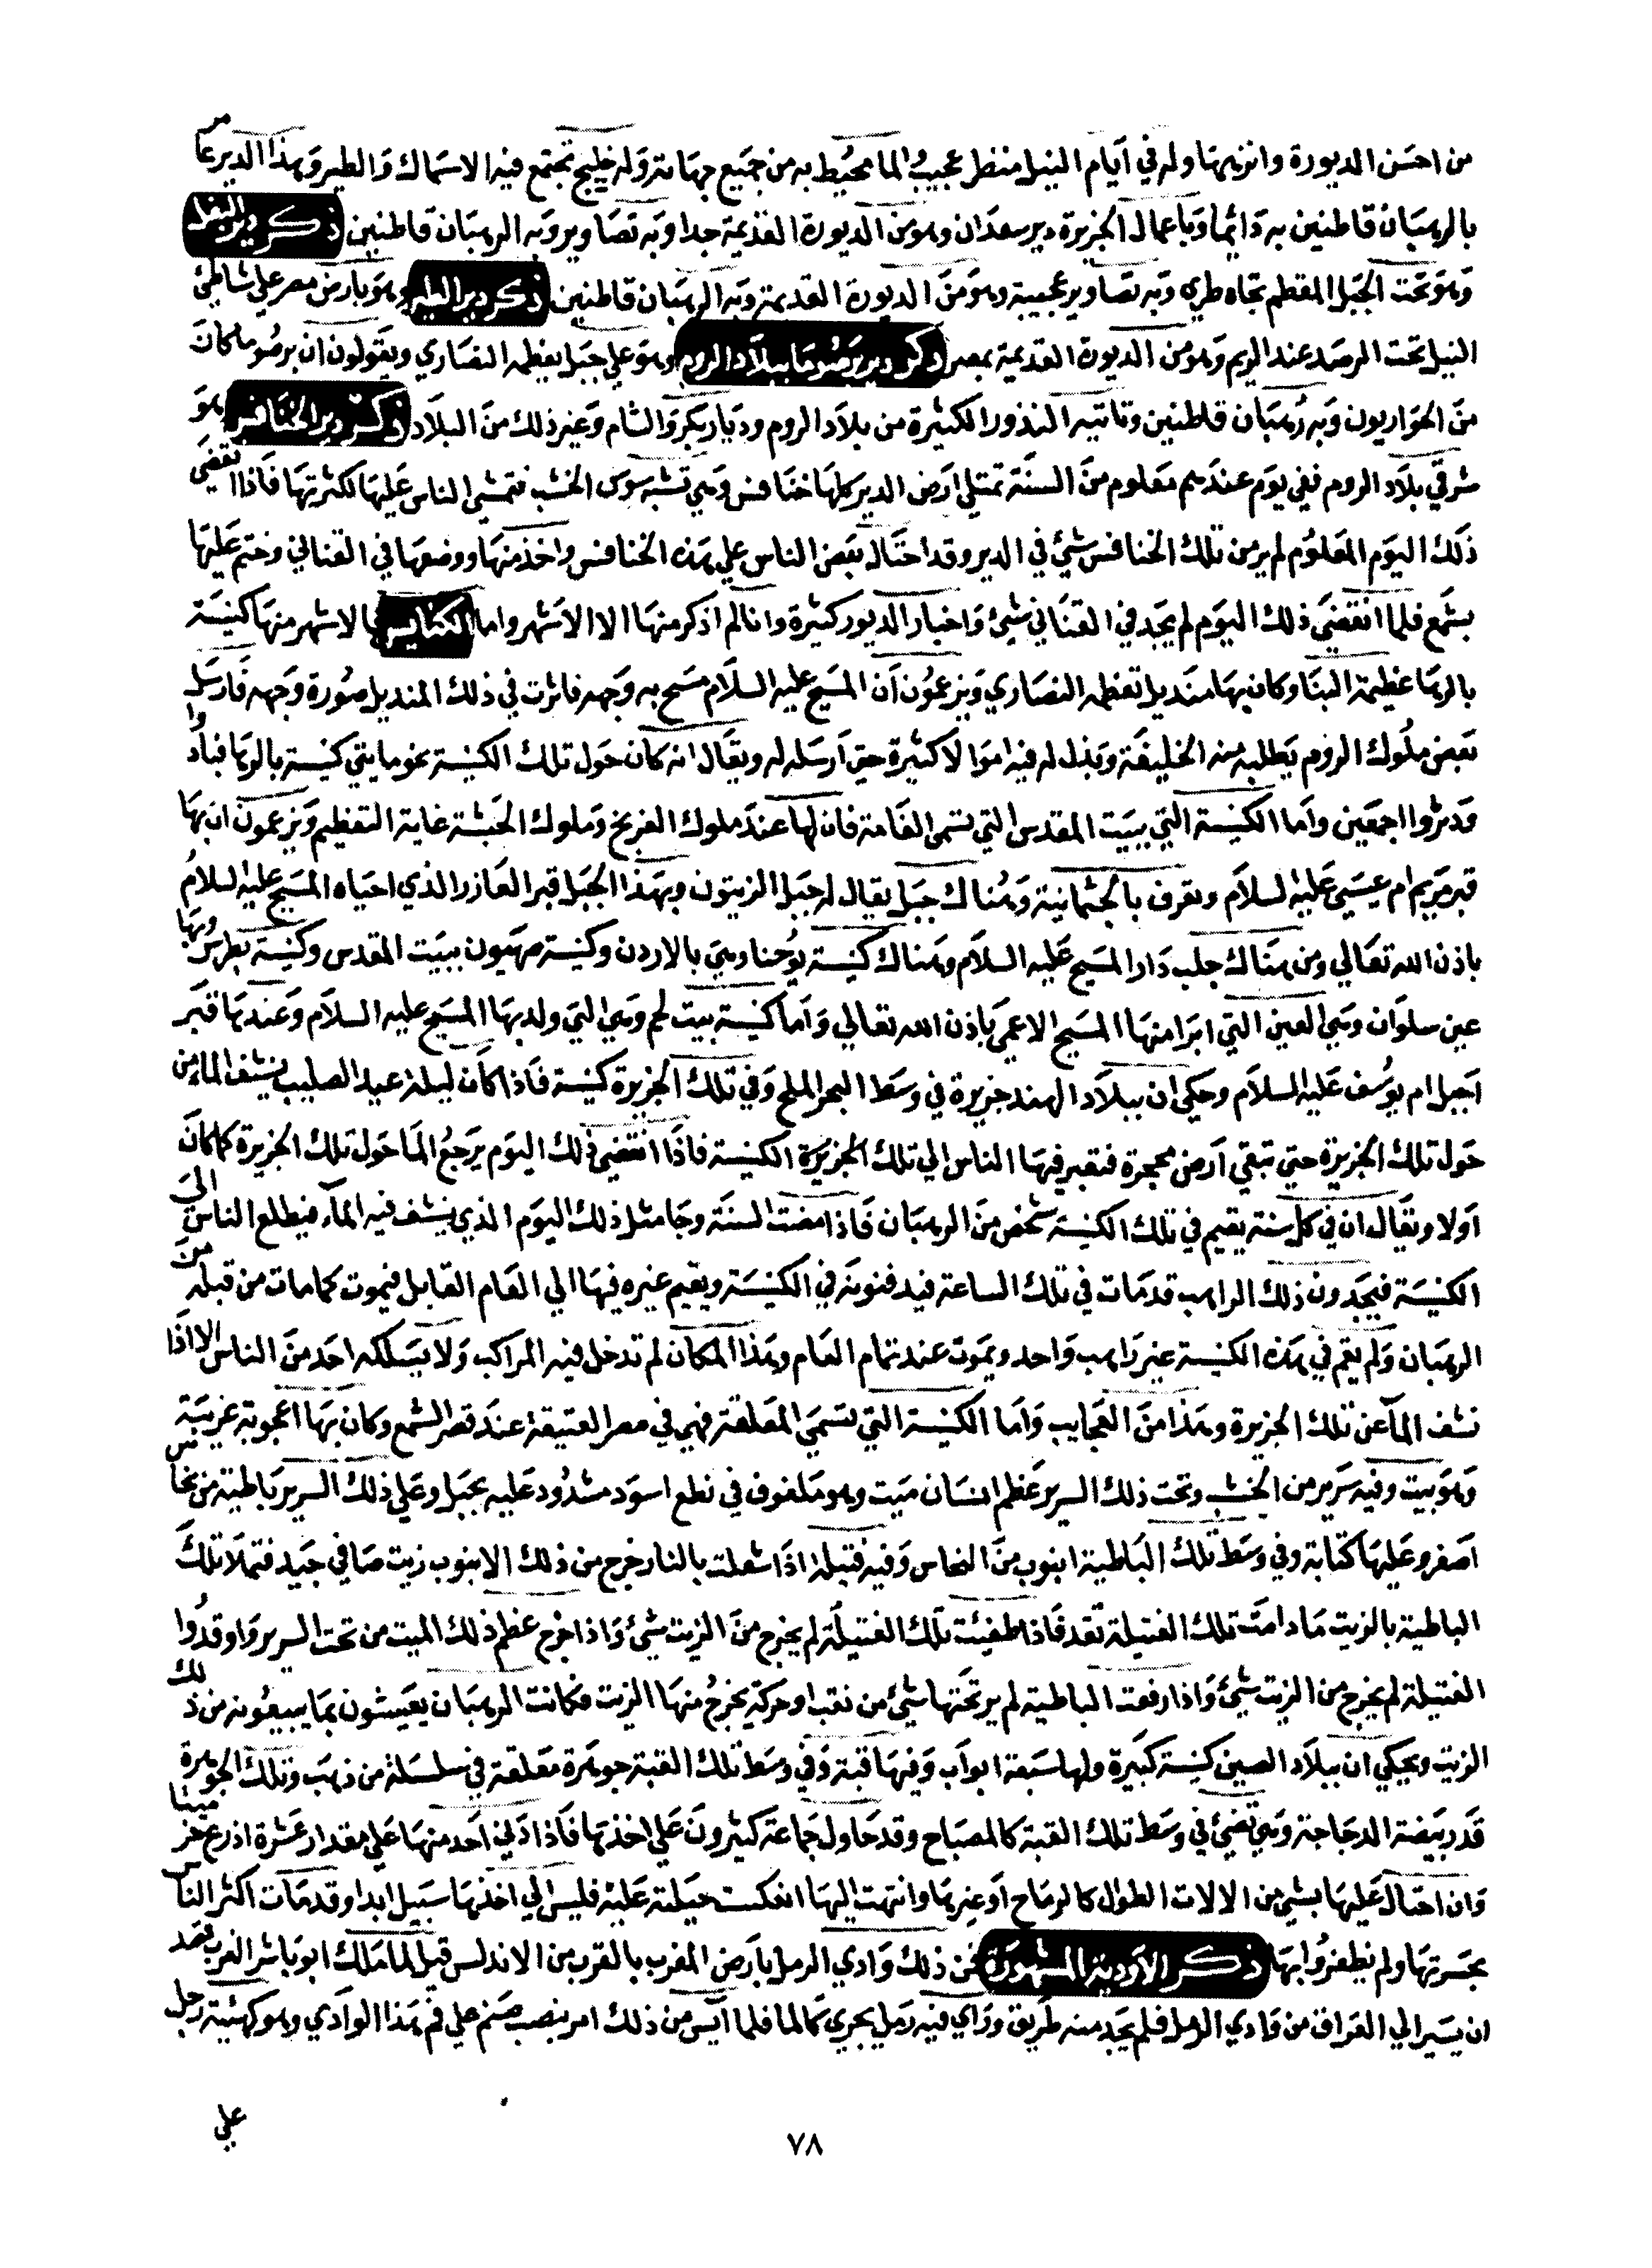 من احسن الديورة وانزهها وله في ايام النيل منظر عجيب والما محيط به من جميع جهاته وله خليج تجتمع فيه الاسماك والطير وهذا الدير عامر
بالرهبان قاطنين به دائما وباعمال الجيزة دير سعدان وهو من الديورة القديمة جدا وبه تصاوير وبه الرهبان قاطنين ذكر دير البغل
وهو تحت الجبل المقطم تجاه طري وبه تصاوير عجيبة وهو من الديورة القديمة وبه الرهبان قاطنين ذكر دير الطير وهو بارض مصر علي شاطئ
النيل تحت الرصد عند الريم وهو من الديورة القديمة بمصر ذكر دير برصوما ببلاد الروم وهو علي جبل يعظمه النصاري ويقولون ان برصوما كان
من الحواريون وبه رهبان قاطنين وتاتيه النذور الكثيرة من بلاد الروم وديار بكر والشام وغير ذلك من البلاد ذكر دير الخنافس هو
شرقي بلاد الروم ففي يوم عندهم معلوم من السنة تمتلي ارض الدير كلها خنافس وهي تشبه سوس الخشب فتمشي الناس عليها لكثرتها فاذا انقضي
ذلك اليوم المعلوم لم ير من تلك الخنافس شئ في الدير وقد احتال بعض الناس علي هذه الخنافس واخذ منها ووضعها في القناني وختم عليها
بشمع فلما انقضي ذلك اليوم لم يجد في القناني شئ واخبار الديور كثيرة وانا لم اذكر منها الا الاشهر واما الكنايس فالاشهر منها كنيسة
بالرها عظيمة البنا وكان بها منديل تعظمه النصاري ويزعمون ان المسيح عليه السلام مسح به وجهه فاثرت في ذلك المنديل صورة وجهه فارسل
بعض ملوك الروم يطلبه من الخليفة وبذل له فيه اموالا كثيرة حتي ارسله له ويقال انه كان حول تلك الكنيسة نحو مايتي كنيسة بالرها فبادوا
ودثروا اجمعين واما الكنيسة التي ببيت المقدس التي تسمي القامة فان لها عند ملوك الفرنج وملوك الحبشة غاية التعظيم ويزعمون ان بها
قبر مريم ام عيسي عليه السلام وتعرف بالجثمانية وهناك جبل يقال له جبل الزيتون وبهذا الجبل قبر العازر الذي احياه المسيح عليه السلام
باذن الله تعالي ومن هناك جلب دار المسيح عليه السلام وهناك كنيسة يوحنا وهي بالاردن وكنيسة صهيون ببيت المقدس وكنيسة بطرس وبها
عين سلوان وهي العين التي ابرا منها المسيح الاعمي باذن الله تعالي واما كنيسة بيت لحم وهي التي ولد بها المسيح عليه السلام وعندها قبر
احيل ام يوسف عليه السلام وحكي ان ببلاد الهند جزيرة في وسط البحر الملح وفي تلك الجزيرة كنيسة فاذا كان ليلة عيد الصليب ينشف الماء من
حول تلك الجزيرة حتي تبقي ارض محجرة فتعبر فيها الناس الي تلك الجزيرة الكنيسة فاذا انقضي ذلك اليوم يرجع الما حول تلك الجزيرة كما كان
اولا ويقال ان في كل سنة يقيم في تلك الكنيسة شخص من الرهبان فاذا مضت السنة وجا مثل ذلك اليوم الذي ينشف فيه الماء فيطلع الناس الي
الكنيسة فيجدون ذلك الراهب قد مات في تلك الساعة فيدفنونه في الكنيسة ويقيم غيره فيها الي العام القابل فيموت كما مات من قبله من
الرهبان ولم يقم في هذه الكنيسة غير راهب واحد ويموت عند تمام العام وهذا المكان لم تدخل فيه المراكب ولا يسلكه احد من الناس الا اذا
نشف الماء عن تلك الجزيرة وهذا من العجايب واما الكنيسة التي تسمي المعلقة فهي في مصر العتيقة عند قصر الشمع وكان بها اعجوبة غريبة
وهو بيت وفيه سرير من الخشب وتحت ذلك السرير عظم انسان ميت وهو ملفوف في نطع اسود مشدود عليه بحبل وعلي ذلك السرير باطية من نحاس
اصفر وعليها كتابة وفي وسط تلك الباطية انبوب من النحاس وفيه فتيلة اذا شعلت بالنار خرج من ذلك الانبوب زيت صافي جيد فتملا تلك
الباطية بالزيت ما دامت تلك الفتيلة تقد فاذا طفئت تلك الفتيلة لم يخرج من الزيت شئ واذا خرج عظم ذلك الميت من تحت السرير واوقدوا
الفتيلة لم يخرج من الزيت شئ واذا رفعت الباطية لم ير تحتها شئ من نقب او حركة يخرج منها الزيت فكانت الرهبان يعيشون بما يبيعونه من ذلك
الزيت ويحكي ان ببلاد الصين كنيسة كبيرة ولها سبعة ابواب وفيها قبة وفي وسط تلك القبة جوهرة معلقة في سلسلة من ذهب وتلك الجوهرة
قدر بيضة الدجاجة وهي تضئ في وسط تلك القبة كالمصباح وقد حاول جماعة كثيرون علي اخذها فاذا دني احد منها علي مقدار عشرة اذرع خر ميتا
وان احتال عليها بشي من الالات الطوال كالرماح او غيرها وانتهت اليها انعكست حيلته عليه فليس الي اخذها سبيل ابدا وقد مات اكثر الناس
بحسرتها ولم يظفروا بها ذكر الاودية المشهورة فمن ذلك وادي الرمل بارض المغرب بالقرب من الاندلس قيل لما ملك ابو ياشر الغرب قصد
ان يسير الي العراق من وادي الرمل فلم يجد منه طريق وراي فيه رمل يجري كالما فلما آيس من ذلك امر بنصب صنم علي فم هذا الوادي وهو كهيئة رجل
علي
٧٨